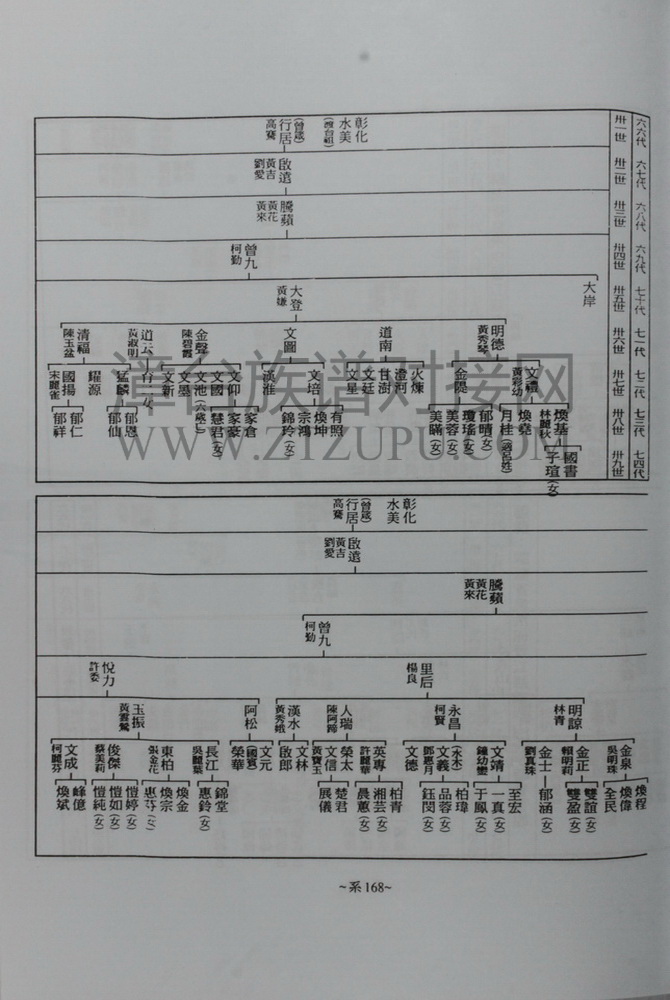 六六代、卅一世
六七代、卅二世
六八代、卅三世
六九代、卅四世
七十代、卅五世
七一代、卅六世
七二代、卅七世
七三代、卅八世
七四代、卅九世
彰化
水美
(渡台祖)
(曾蔵)
行居
高騫
啟遠
黃吉
劉愛
騰蘋
黃花
黃來
曾九
柯勤
大岸
大登
黃嫌
明德
黃秀琴
道南
文圖
金聲
陳碧霞
道云
黃淑明
清福
陳玉盆
文禮
黃彩幼
金隄
火煉
澄河
甘澍
文廷
文星
文培
漢淮
文仰
文國
文池(六歲亡)
文墨
文新
猛麟
耀源
國揚
宋麗雀
煥基
林麗秋
煥堯
月桂(適呂姓)
郁晴(女)
瓊瑤(女)
美蓉(女)
美瞞(女)
有照
煥坤
宗鴻
錦玲(女)
家倉
家豪
慧君(女)
郁恩
郁仙
郁仁
郁祥
國書
子瑄(女)
漳台族谱对接网
WWW.ZTZUPU.COM
彰化
水美
(曾蔵)
行居
高騫
啟遠
黃吉
劉愛
騰蘋
黃花
黃來
曾九
柯勤
里后
楊良
悅力
許委
明諒
林青
永昌
柯賢
人瑞
陳阿蹄
漢水
黃秀娥
阿松
玉振
黃雲鶯
金泉
吳明珠
金正
賴明莉
金士
劉真珠
文靖
鐘幼孌
(永木)
文義
鄭惠月
文德
英專
許麗華
榮太
文信
黃寶玉
文林
啟郎
文元
(國賓)
榮華
長江
吳麗葉
東柏
張金花
俊傑
蔡美莉
文成
柯麗芬
煥程
煥偉
全民
雙誼(女)
雙盈(女)
郁涵(女)
至宏
一真(女)
于鳳(女)
柏瑋
品蓉(女)
鈺閔(女)
柏青
湘芸(女)
晨蕙(女)
楚君
展儀
錦堂
惠鈴(女)
煥金
煥宗
愷婷(女)
愷如(女)
愷純(女)
峰億
煥斌
~系168~